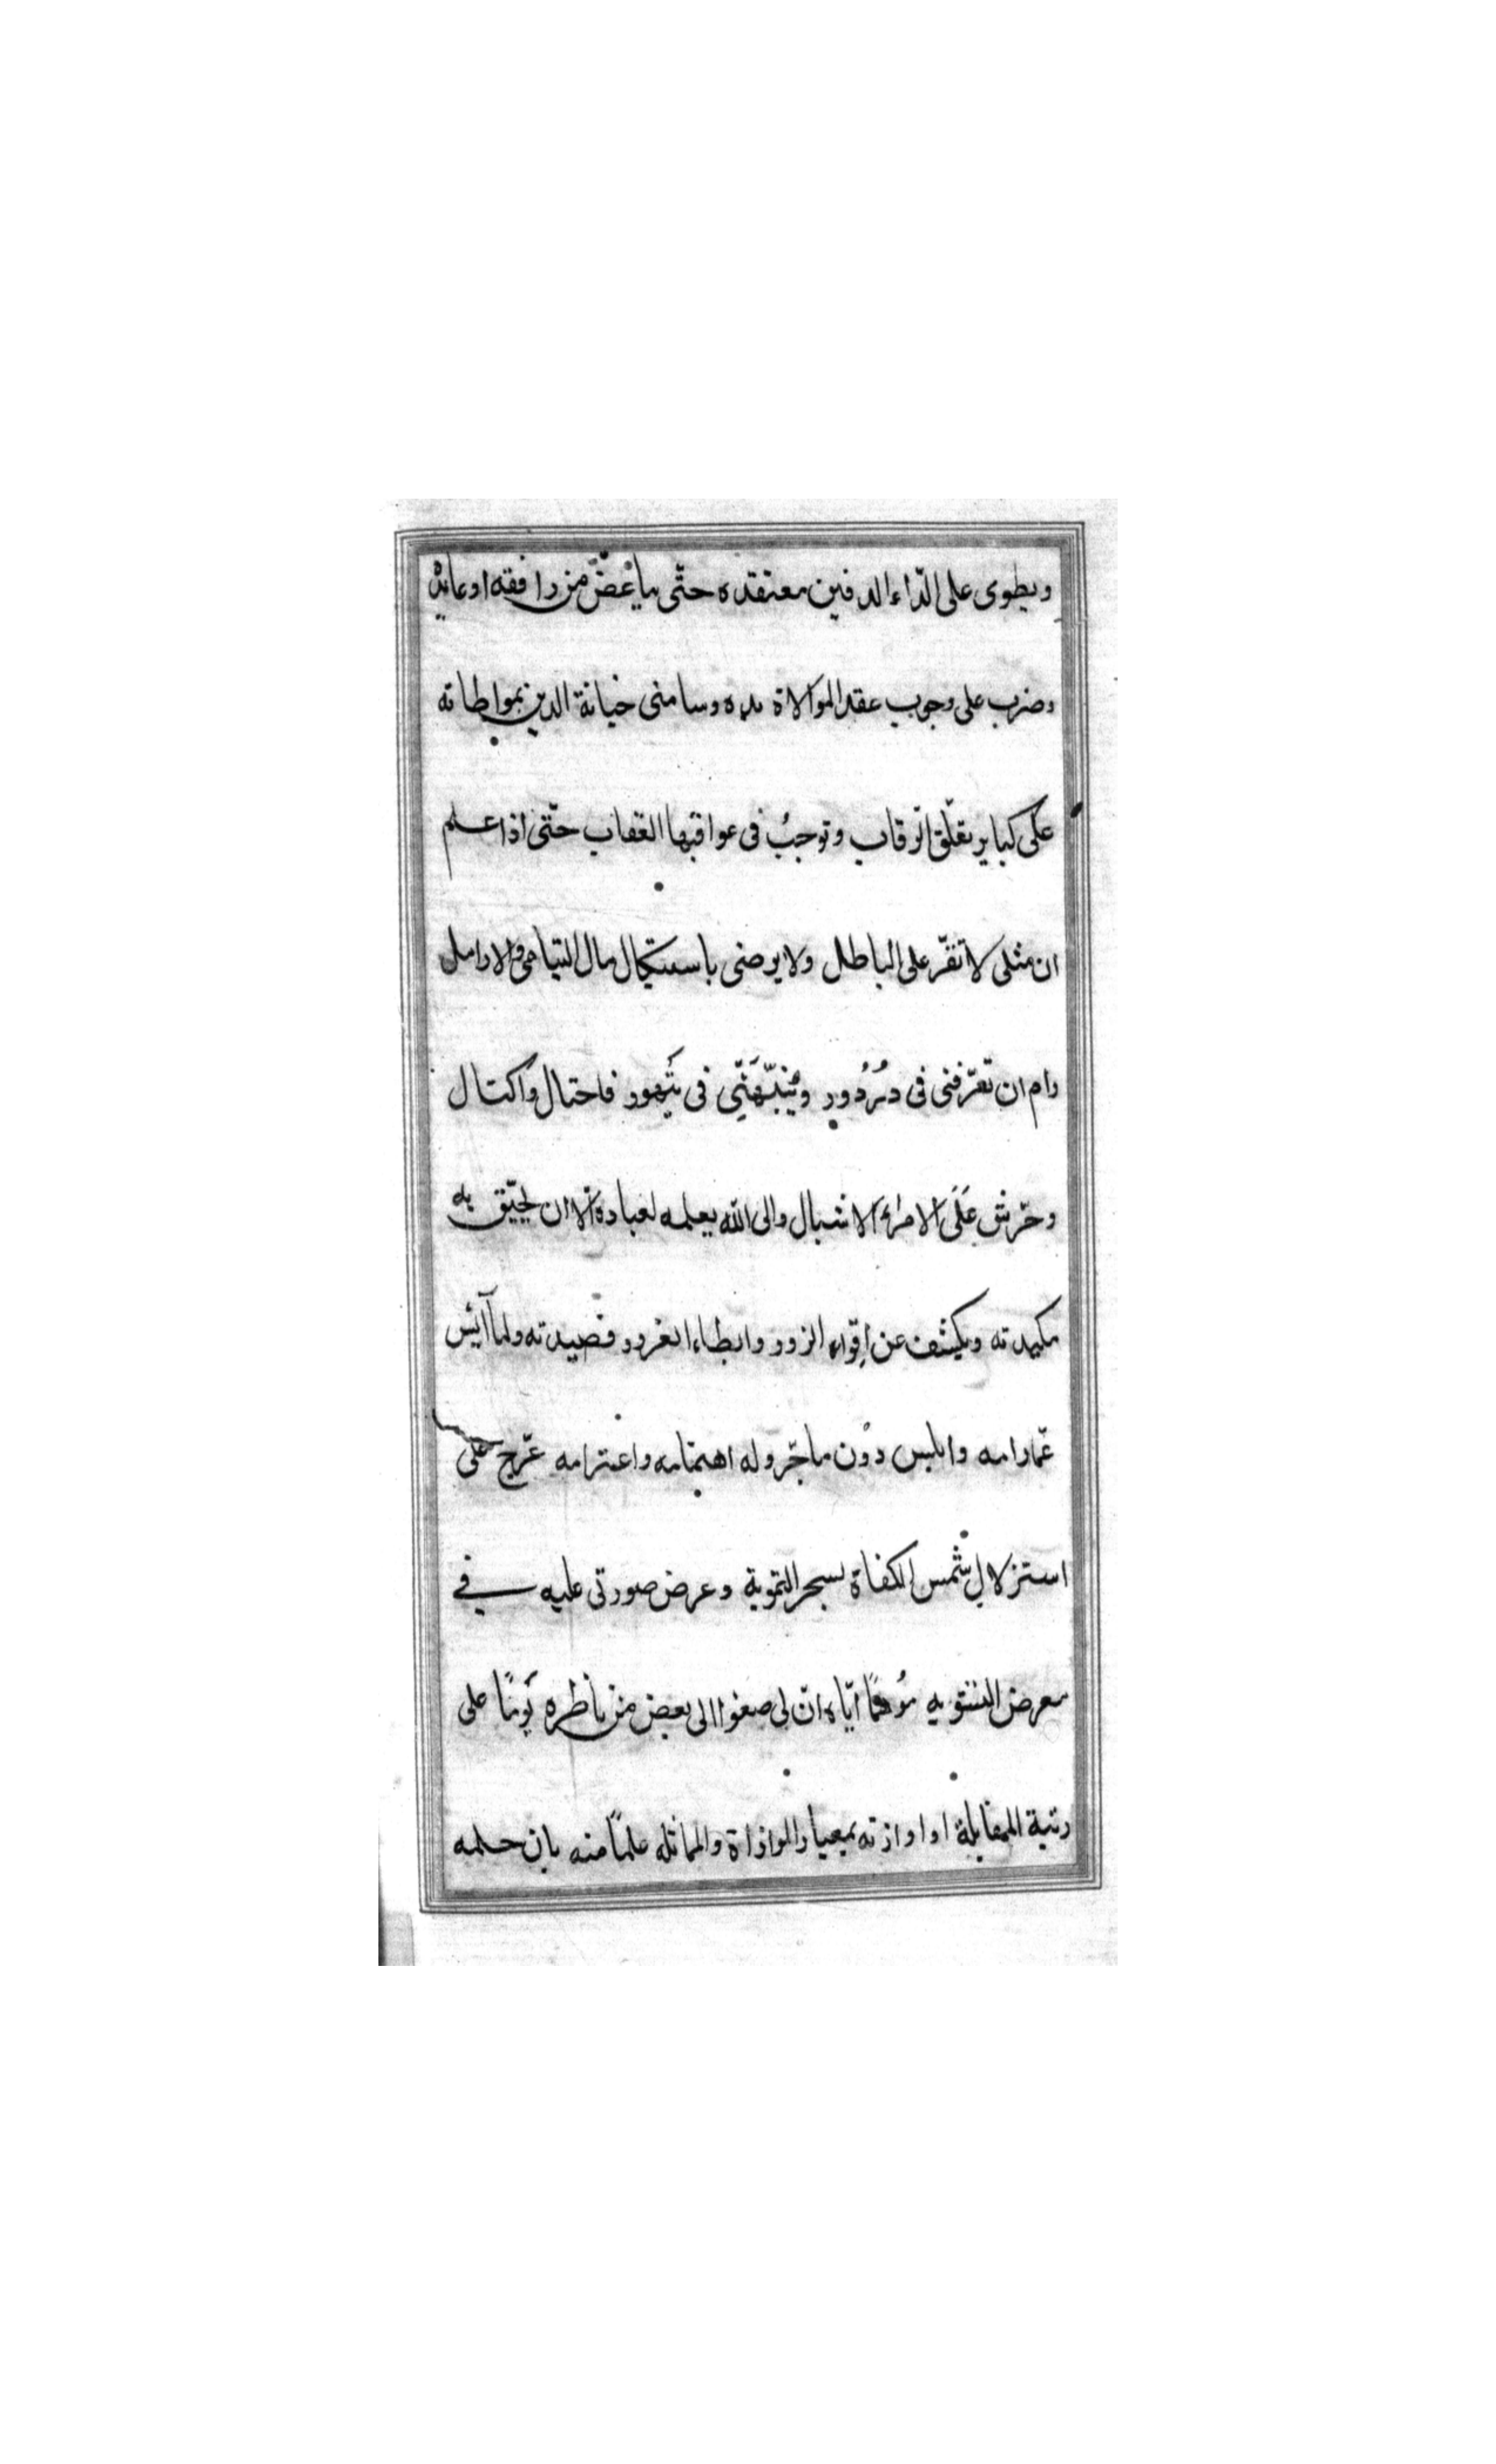 ويطوى على الدّاء الدفين معتقده حتّى يايغضّ من رافقه اوعانده
وضرب على وجوب عقد الموالاة يده وسامنى خيانة الدين بمواطاته
على كباير تعلّق الرقاب وتوجبُ فى عواقبها العقاب حتّى اذا علم
ان مثلى لا تقرّ على الباطل ولا يرضى باستيكال مال اليتيامى والارامل
رام ان تغرّفنى فى دُردُور ويُنبّهَنِّى فى يَتهور فاحتال واكتال
وحرّش عَلَىَّ الامراء الاشبال والى اللّه يعلمه لعباده الّا ان يحيّق به
مكيدته ويكشف عن اقواء الزور وابطاء الغرور قصيدته ولما آئيس
عمّا رامه وابلس دون ماجّر وله اهتمامه واعتزامه عرّج على
استزلال شمس الكفاة بسحر التموية وعرض صورتى عليه في
معرض التشويه مُوهمًا ايّاه انّ لى صغوا الى بعض من ناظره يَومًا على
رتبة المقابلة او اوازته بمعيار الموازاة والمماثله علمًا منه بان حلمه